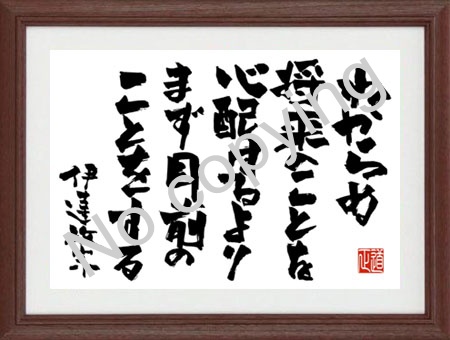 わからぬ
将来のことを
心配するより
まず目前の
ことをする
伊達政宗
道正
No copying